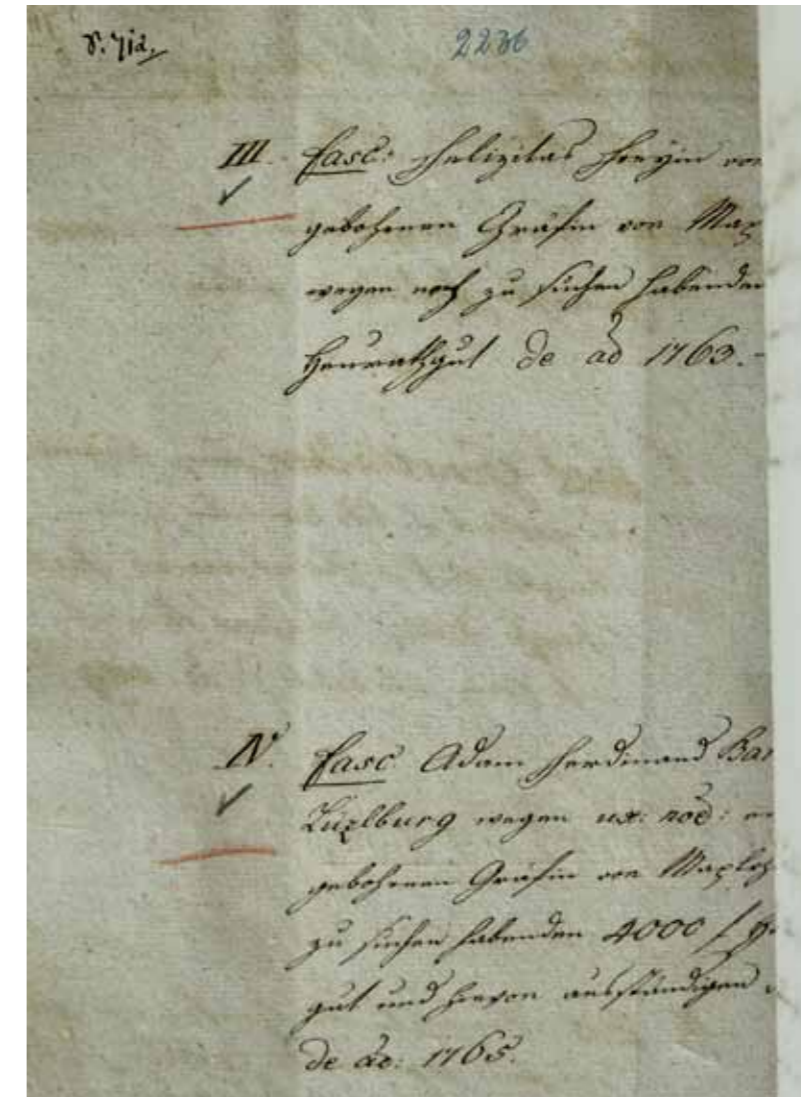 2236
III. Fasc: Felizitas Freyin von
gebohrenen Gräfin von Max
wegen noch zu suchen habenden
Heurathgut de ao 1763.-
IV. Fasc. Adam Ferdinand Bar
Lüzlburg wegen ux: noe:
gebohrenen Gräfin von Maxlr
zu suchen habenden 4000 f
gut und hievon ausständigen
de ao: 1765.